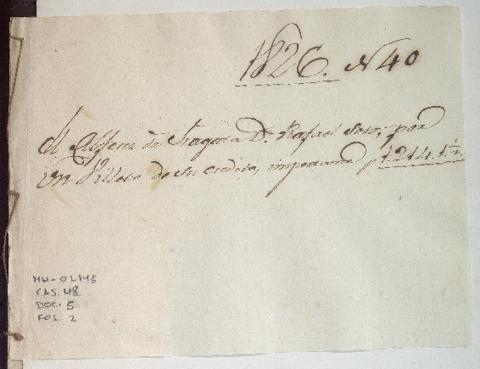 1826. N 40
El Alferez de Fragata Dn. Rafael Soto, por
un Villete de su credito, importante p. 1.214. 1½
MH-OL146
CAS. 48
DOC. 5
FOL 2